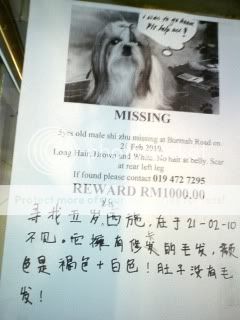 I want to go home
Pls help me!
MISSING
5yrs old male shi zhu missing at Burmah Road on
21 Feb 2010.
Long Hair, Brown and White. No hair at belly. Scar
at rear left leg
If found please contact 019 472 7295
REWARD RM1000.00
寻找五岁西施,在于21-02-10
不见。它拥有修长的毛发,颜
色是褐色+白色!肚子没有毛
发!